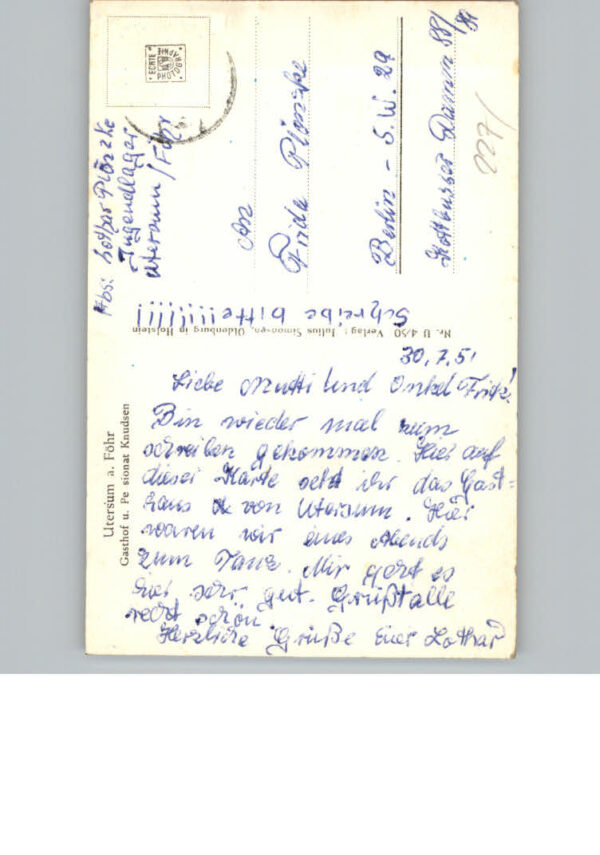 ECHTE
PHOTOGRAPHIE
Abs: Lothar Plönzke
Jugendlager
Utersum / Föhr
An
Frida Plönzke
Berlin - S.W. 29
Kottbusser Damm 88/
227/
Schreibe bitte!!!!!!!!
Nr. U 4/50 Verlag: Julius Simonsen, Oldenburg in Holstein
Utersum a. Föhr
Gasthof u. Pe sionat Knudsen
30.7.51
Liebe Mutti und Onkel Fritz!
Bin wieder mal zum
schreiben gekommen. Hier auf
dieser Karte seht ihr das Gast=
haus von Utersum. Hier
waren wir eines Abends
zum Tanz. Mir geht es
hier sehr gut. Grüßt alle
recht schön.
Herzliche Grüße Euer Lothar